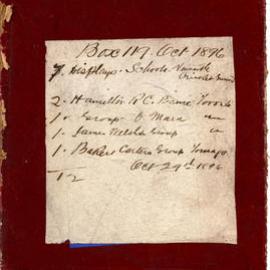 Box 119. Oct 1896
7 Displays. Schools.
2. Hamilton R.C. Dame
1. Group. O'Mara
1. James Welsh Group
1. Baker Carters Group
Oct 29th 1896
12